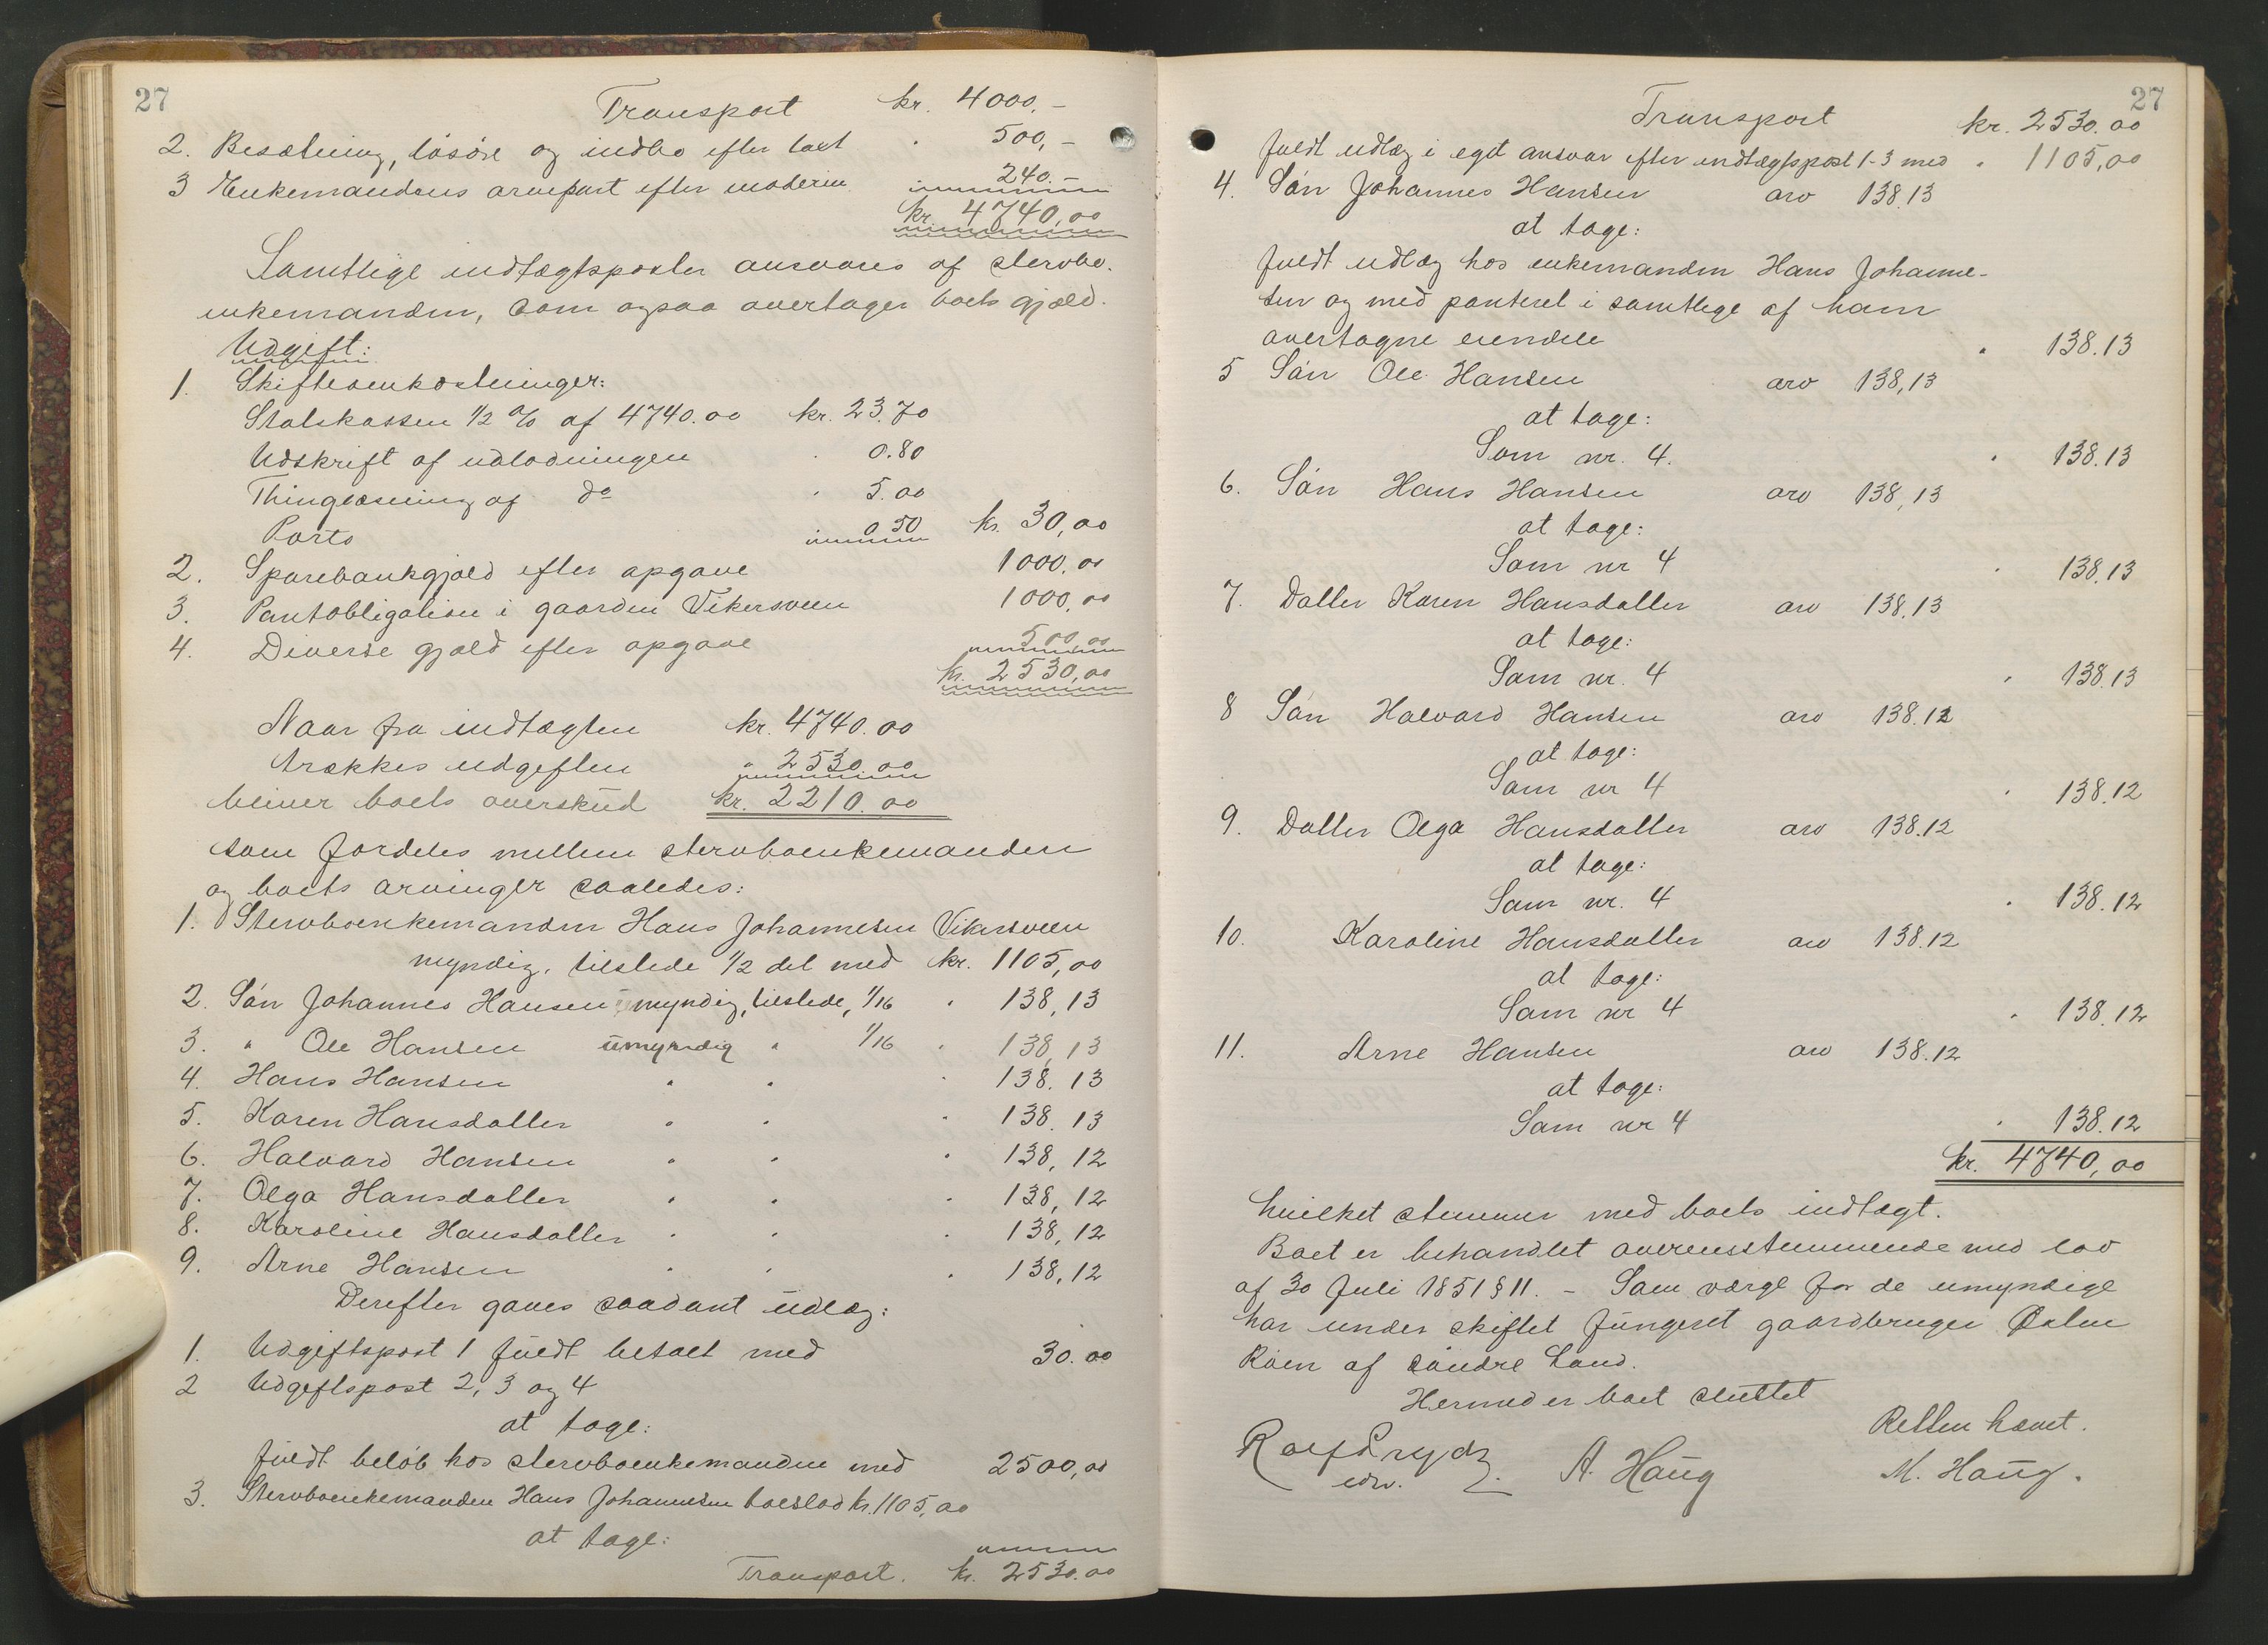 27
Transport kr. 4000.-
2. Besætning, løsøre og indbo efter taxt " 500,-
3 Enkemandens arvepart efter moderen 240.-
kr. 4740,00
Samtlige indtægtsposter ansvares af stervbo-
enkemanden, som ogsaa overtager boets gjæld.
Udgift:
1. Skifteomkostninger:
Statskassen 1/2 % af 4740.00 kr. 23.70
Udskrift af udlodningen " 0.80
Thinglæsning af do " 5.00
Porto 0.50 kr. 30,00
2. Sparebankgjæld efter opgave 1000.00
3. Pantobligation i gaarden Vikersveen 1000,00
4. Diverse gjæld efter opgave 500,00
kr. 2530,00
Naar fra indtægten kr. 4740.00
trækkes udgiften " 2530.00
bliver boets overskud kr. 2210.00
som fordeles mellem stervboenkemanden
og boets arvinger saaledes:
1. Stervboenkemanden Hans Johannesen Vikersveen
myndig, tilstede 1/2 del med kr. 1105,00
2. Søn Johannes Hansen myndig, tilstede, 1/16 " 138,13
3. " Ole Hansen umyndig " 1/16 " 138,13
4. Hans Hansen " " " 138.13
5. Karen Hansdatter " " " 138.13
6. Halvard Hansen " " " 138,12
7. Olga Hansdatter " " " 138,12
8. Karoline Hansdatter " " " 138,12
9. Arne Hansen " " " 138,12
Derefter gaves saadant udlæg:
1. Udgiftspost 1 fuldt betalt med 30.00
2 Udgiftspost 2, 3 og 4
at tage:
fuldt beløb hos stervboenkemanden med 2500,00
3. Stervboenkemanden Hans Johannesen boeslod kr. 1105,00
at tage:
Transport. kr. 2530.00
27
Transport kr. 2530.00
fuldt udlæg i eget ansvar efter indtægtspost 1-3 med " 1105,00
4. Søn Johannes Hansen arv 138.13
at tage:
fuldt udlæg hos enkemanden Hans Johanne-
sen og med panteret i samtlige af ham
overtagne eiendele " 138.13
5 Søn Ole Hansen arv 138,13
at tage:
Som nr. 4. " 138.13
6. Søn Hans Hansen arv 138,13
at tage:
Som nr 4 " 138.13
7. Datter Karen Hansdatter arv 138.13
at tage:
Som nr. 4 " 138.13
8 Søn Halvard Hansen arv 138.12
at tage:
Som nr 4 " 138.12
9. Datter Olga Hansdatter arv 138.12
at tage:
Som nr. 4 " 138.12
10. Karoline Hansdatter arv 138.12
at tage:
Som nr 4 " 138.12
11. Arne Hansen arv 138.12
at tage:
Som nr 4 " 138.12
kr. 4740,00
hvilket stemmer med boets indtægt.
Boet er behandlet overensstemmende med lov
af 30 Juli 1851 § 11. - Som værge for de umyndige
har under skiftet fungeret gaardbruger
af søndre Land.
Hermed er boet sluttet
Retten hævet.
A. Haug M. Haug.